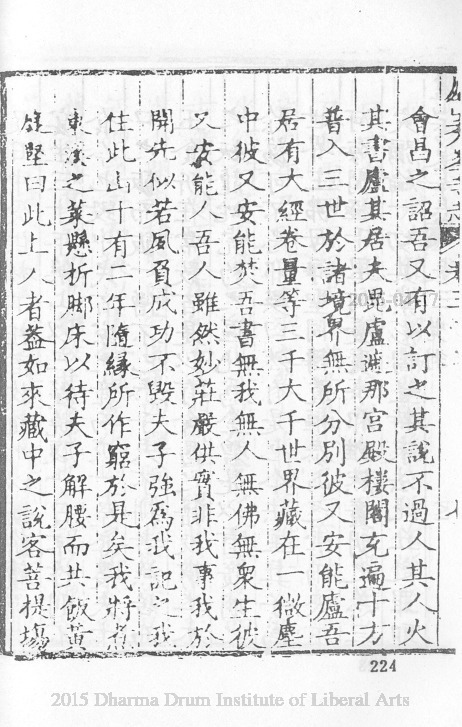 會昌之詔吾又有以訂之其說不過人其人火
其書廬其居夫毘盧遮那宮殿樓閣充遍十方
普入三世於諸境界無所分別彼又安能廬吾
居有大經卷量等三千大千世界藏在一微塵
中彼又安能焚吾書無我無人無佛無衆生彼
又安能人吾人雖然妙莊嚴供實非我事我於
開先似若夙負成功不毀夫子強為我記之我
住此山十有二年隨緣所作窮於是矣我將煮
東溪之菜懸折脚床以待夫子解腰而共飯黃
庭堅曰此上人者蓋如來藏中之說客菩提場
224
2015 Dharma Drum Institute of Liberal Arts